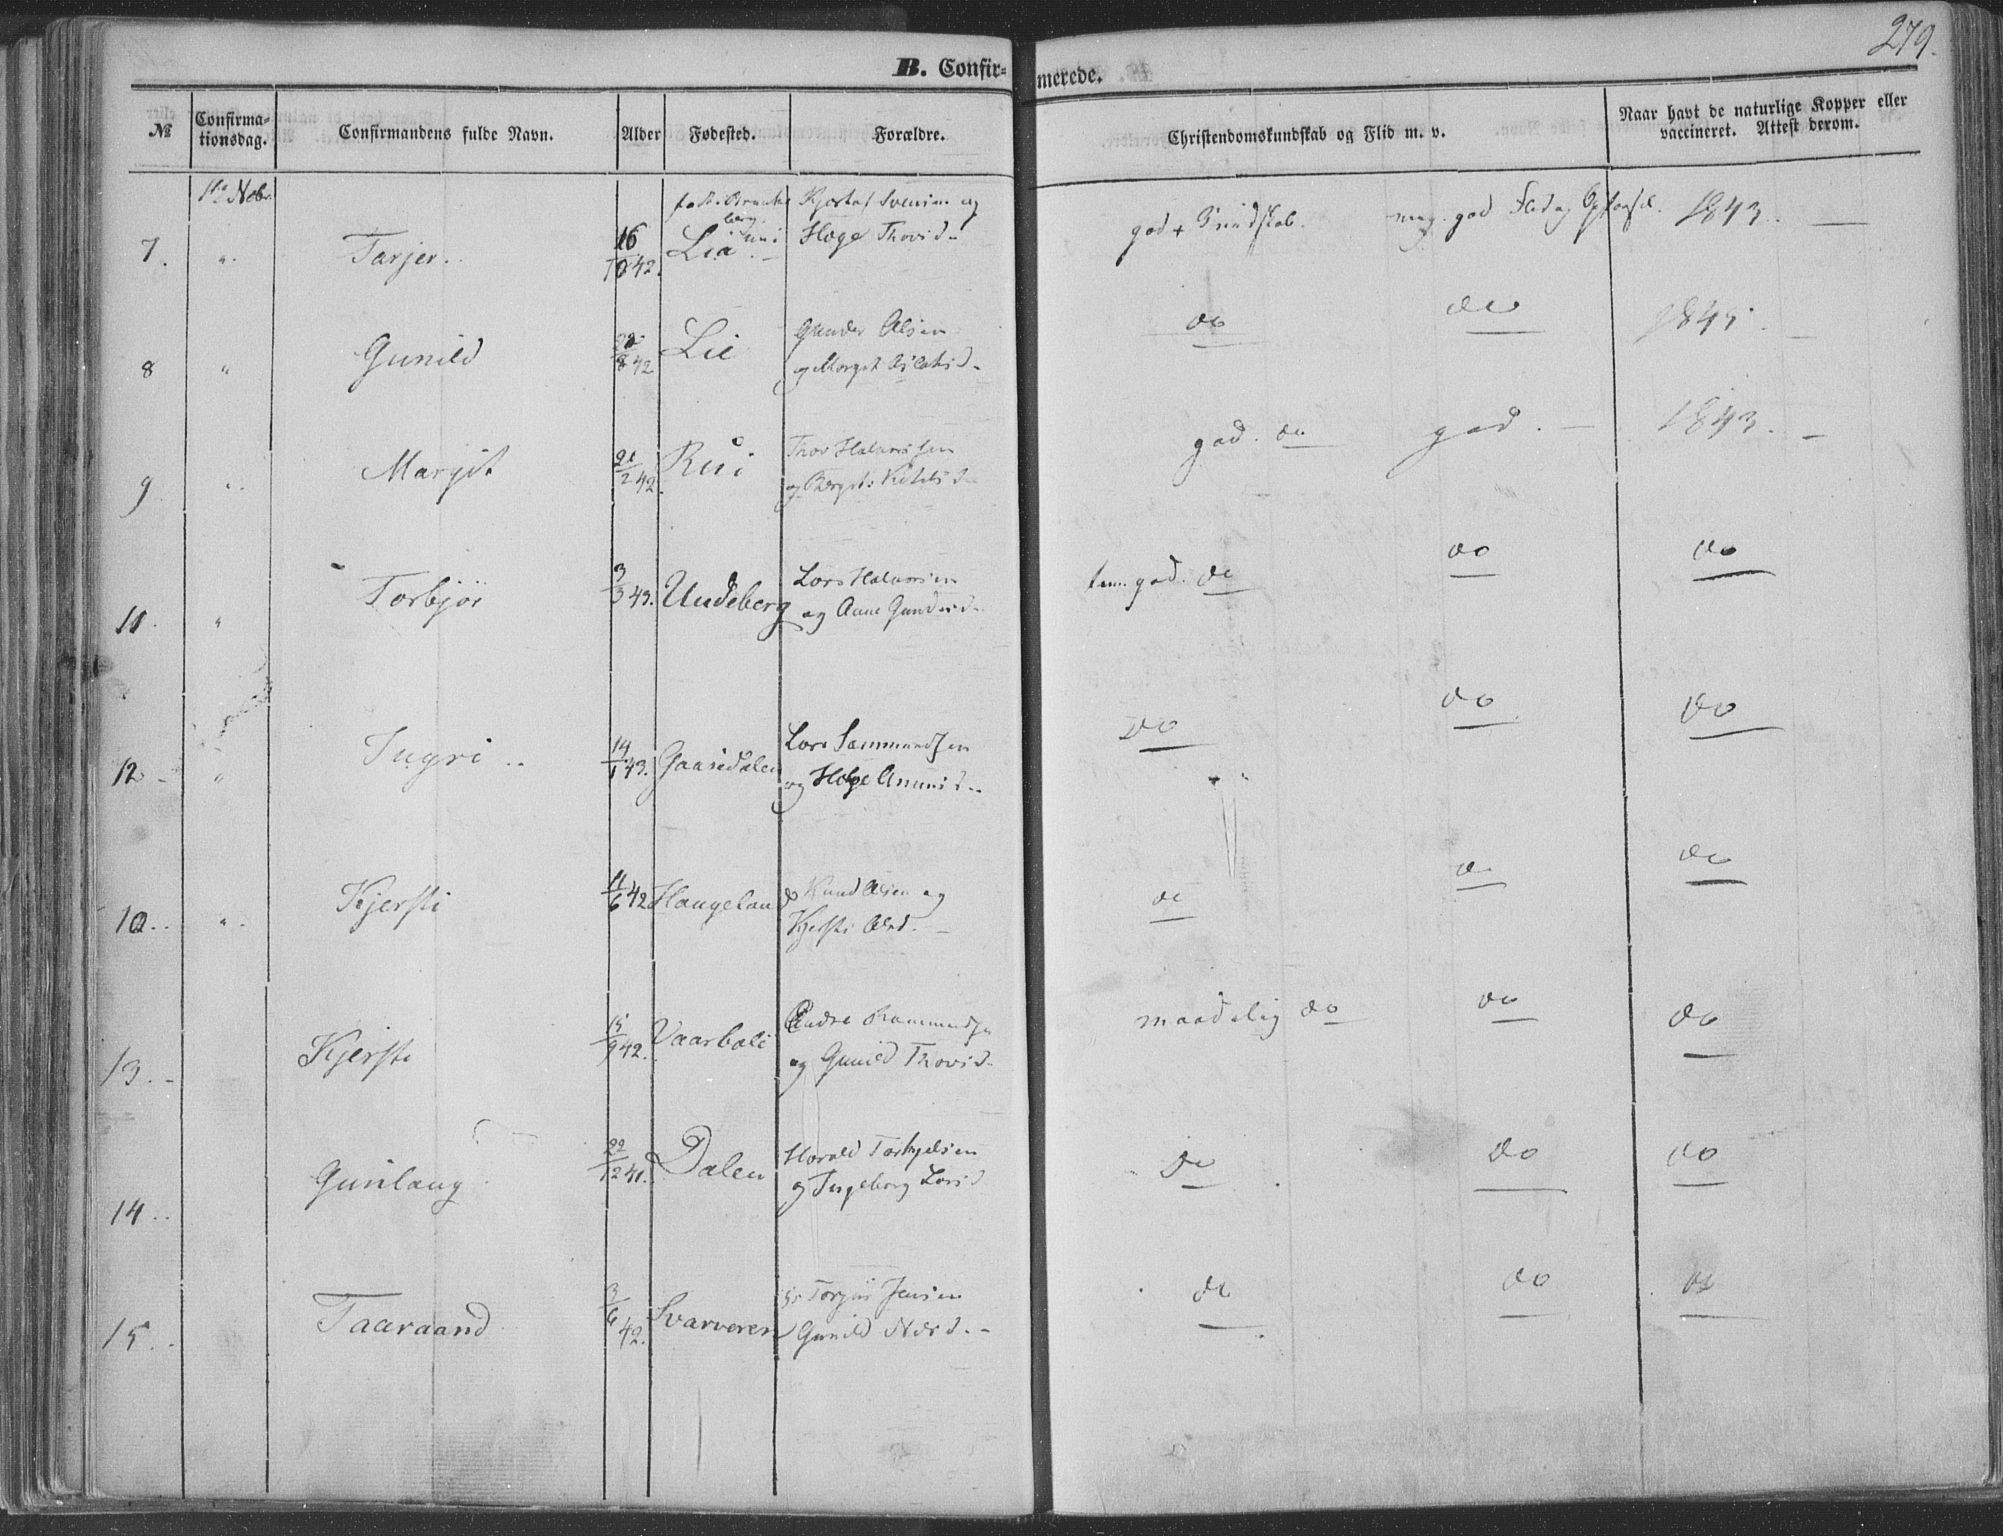 279.
B. Confir-
merede.
№
Confirma-
tionsdag.
Confirmandens fulde Navn.
Alder
Fødested.
Forældre.
Christendomskundskab og Flid m. v.
Naar havt de naturlige Kopper eller
vaccineret. Attest derom.
7. " Tarjer. 16/10 42. Lia Svensen og
Hæge Thovsd. god Kundskab. meg. god Flid og 1843. —
8 " Gunild 8 42 Lie Gunder Olsen
og Margit do do 1845. —
9 " Margit 21/2 42. Rui Thov Halvorsen
og Berget Kitilsd. god. do god. — 1843. —
11. " Torbjør 3/3 43. Undeberg Lars Halvorsen
og Anne Gundersd. tem. god. do do do
12 - " Ingri .. 14/1 43. Gaarsdalen Lars Sammundsen
og Hæge Amunsd. do do do
10. " Kjersti 11/6 42 Haugeland Knud Olsen og
Kjersti Olsd. — do do do
13. - Kjersti 15/9 42. Vaarbali
og Gunild Thovsd. maadelig do do do
14 .. Gunlaug 22/12 41. Dalen Harald Torkjelsen
og Ingeborg Larsd do do do
15 .. Taaraand 3/6 42. Svarveren Torjus Jensen
Gunild do do do